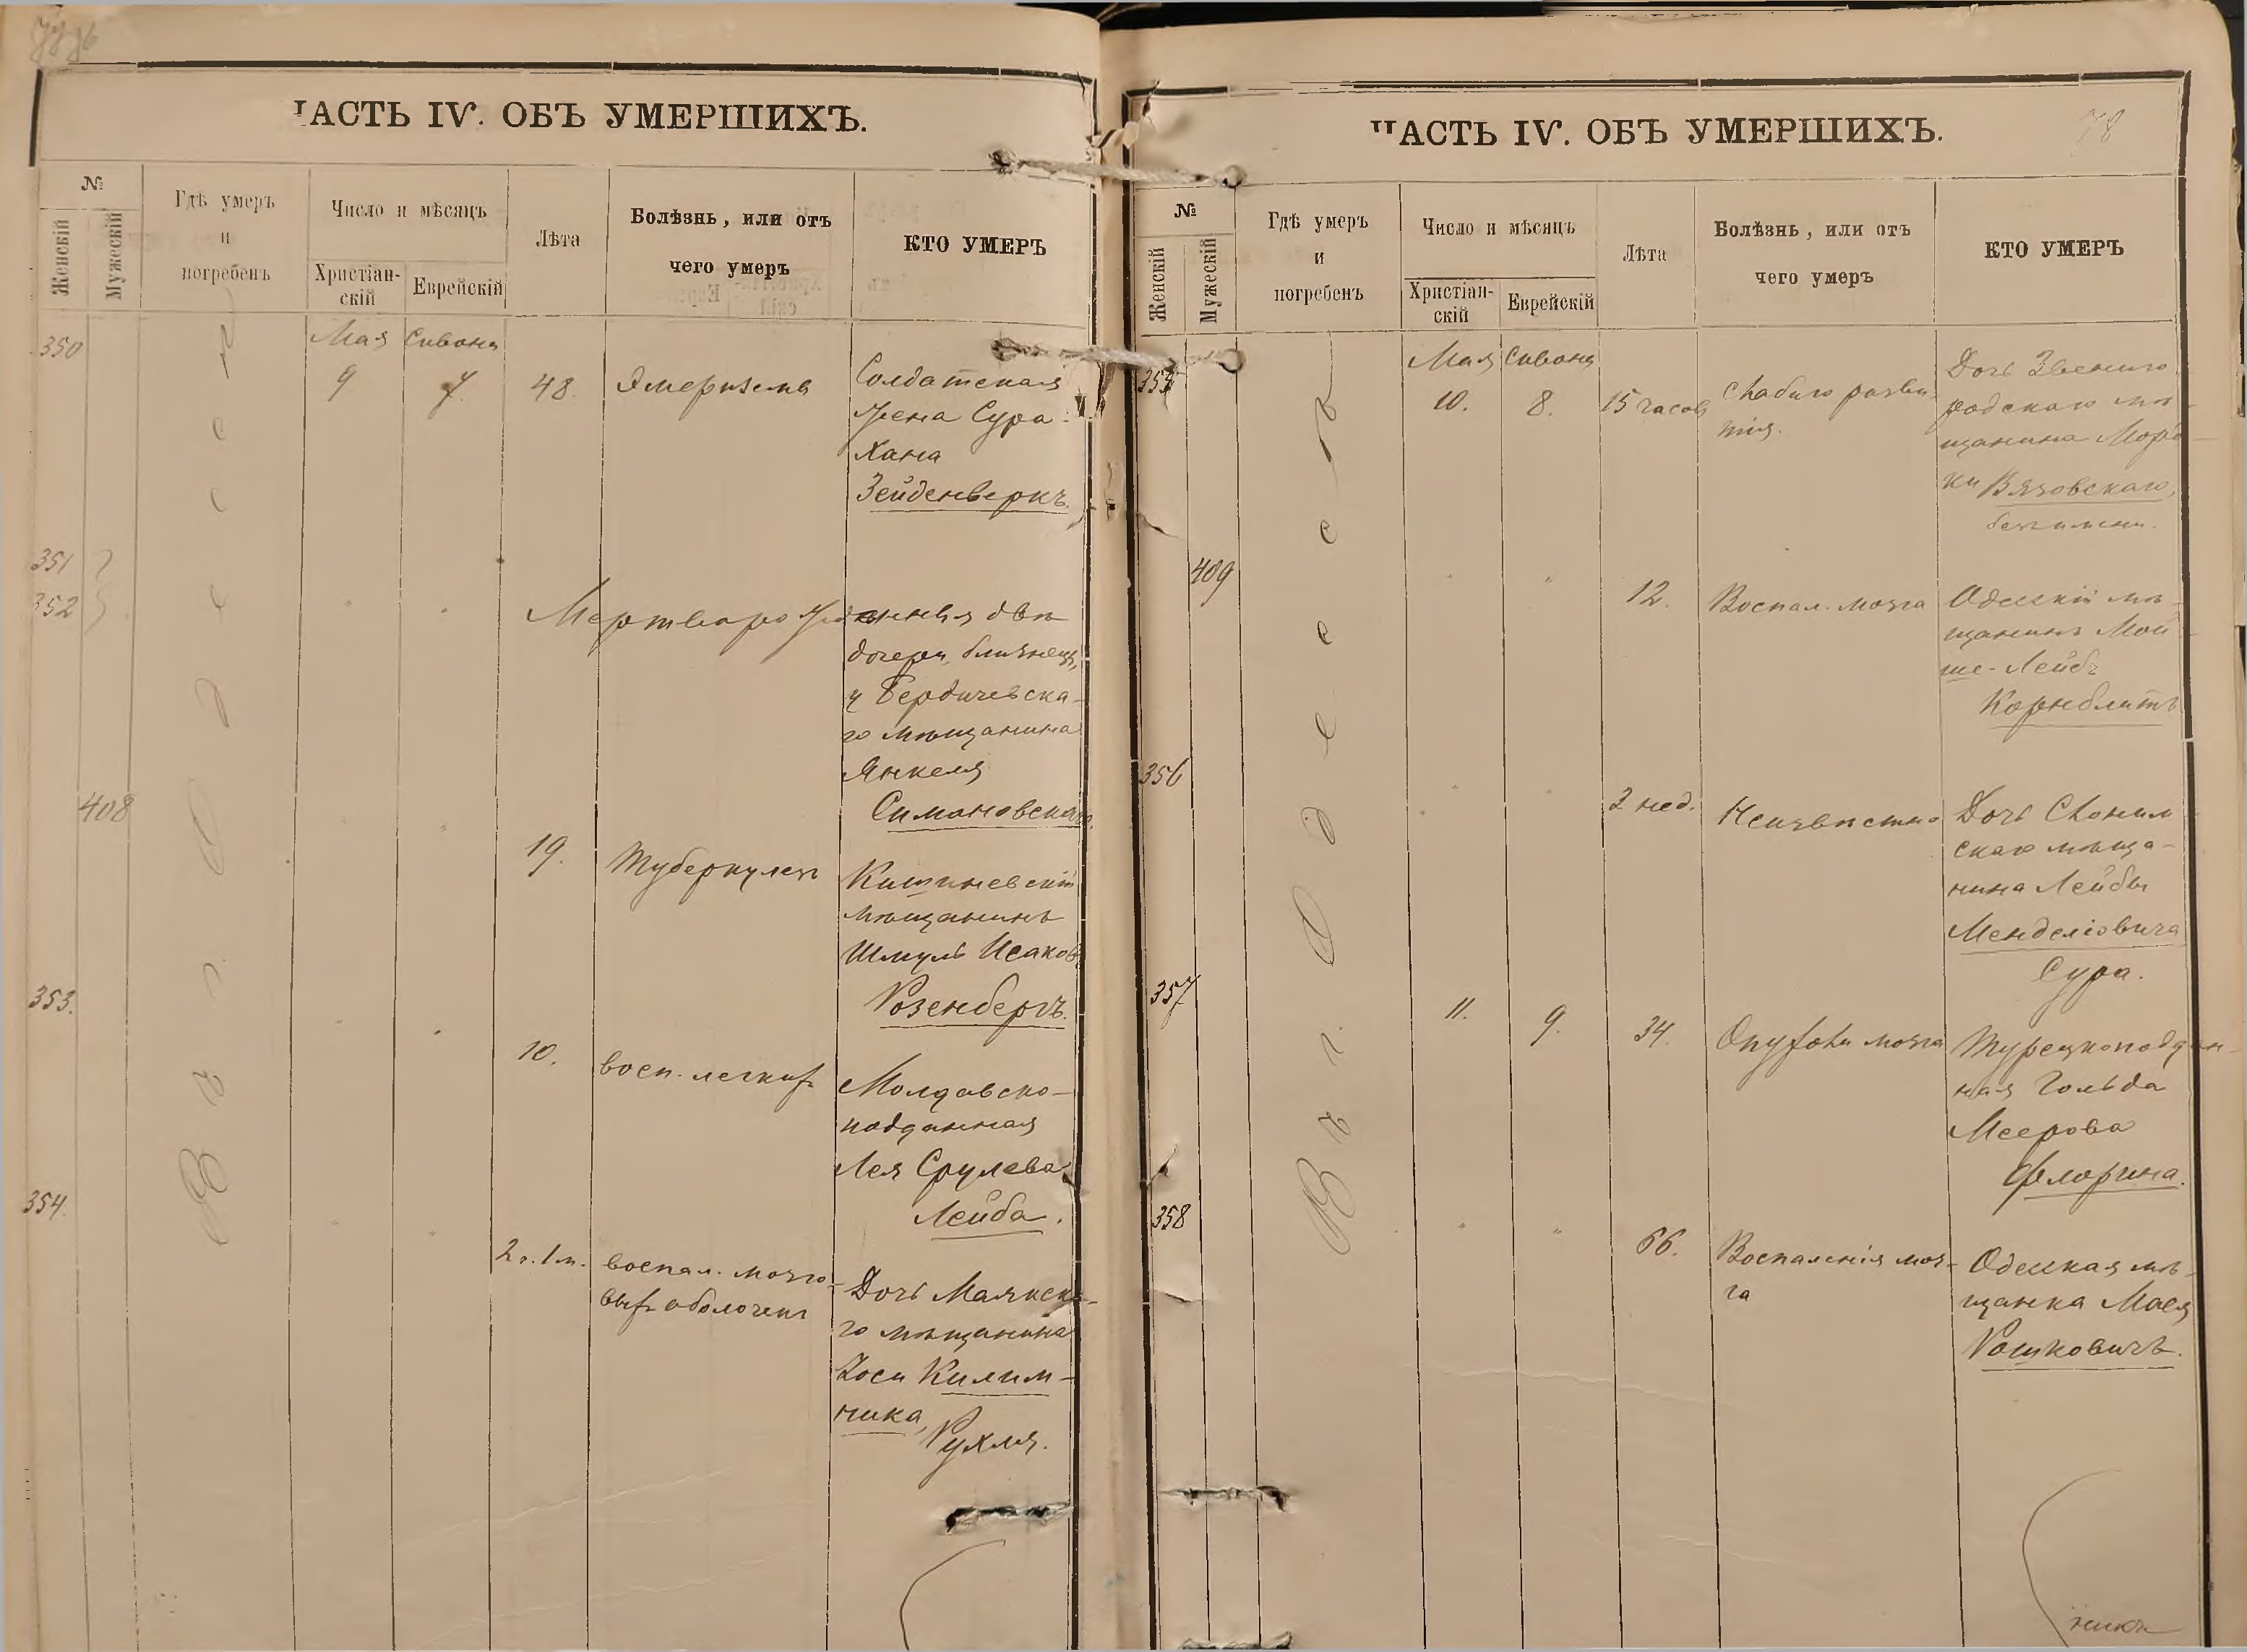 ЧАСТЬ IV. ОБЪ УМЕРШИХЪ.
№
Женскій
Мужескій
Гдѣ умеръ
и
погребенъ
Число и мѣсяцъ
Христіан-
скій
Еврейскій
Лѣта
Болѣзнь, или отъ
чего умеръ
КТО УМЕРЪ
Въ г. Одессѣ
350
Мая Сивона
9 7 48. Эмфизема
Солдатская
жена Сура-
Хана
Зейденверкъ.
351
352
Мертворожденныя двѣ
дочери, близнецы,
у Бердичевска-
го мѣщанина
Янкеля
Симановскаго.
408
19. Туберкулезъ
Кишиневскій
мѣщанинъ
Шмуль Исаковъ
Розенбергъ.
353.
10. восп. легкихъ
Молдавско-
подданная
Лея Срулева
Лейба.
354.
2 г. 1 м. воспал. мозго-
выхъ оболочекъ
Дочь Маякска-
го мѣщанина
Іоси Килим-
ника,
Рухля.
ЧАСТЬ IV. ОБЪ УМЕРШИХЪ.
78
№
Женскій
Мужескій
Гдѣ умеръ
и
погребенъ
Число и мѣсяцъ
Христіан-
скій
Еврейскій
Лѣта
Болѣзнь, или отъ
чего умеръ
КТО УМЕРЪ
Въ г. Одессѣ
355
Мая Сивона
10. 8. 15 часовъ Слабаго разви-
тія.
Дочь Звениго-
родскаго мѣ-
щанина Морд-
ки Вязовскаго,
безъ имени.
409
" 12. Воспал. мозга
Одесскій мѣ-
щанинъ Мой-
ше-Лейбъ
Корнблитъ
356
" 2 нед. Неизвѣстно
Дочь Слоним-
скаго мѣща-
нина Лейбы
Менделіовича
Сура.
357
11. 9. 34. Опухоли мозга
Турецкоподдан-
ная Гольда
Меерова
Флорина.
358
" " 66. Воспаленія моз-
га
Одесская мѣ-
щанка Мася
Рошковичъ.